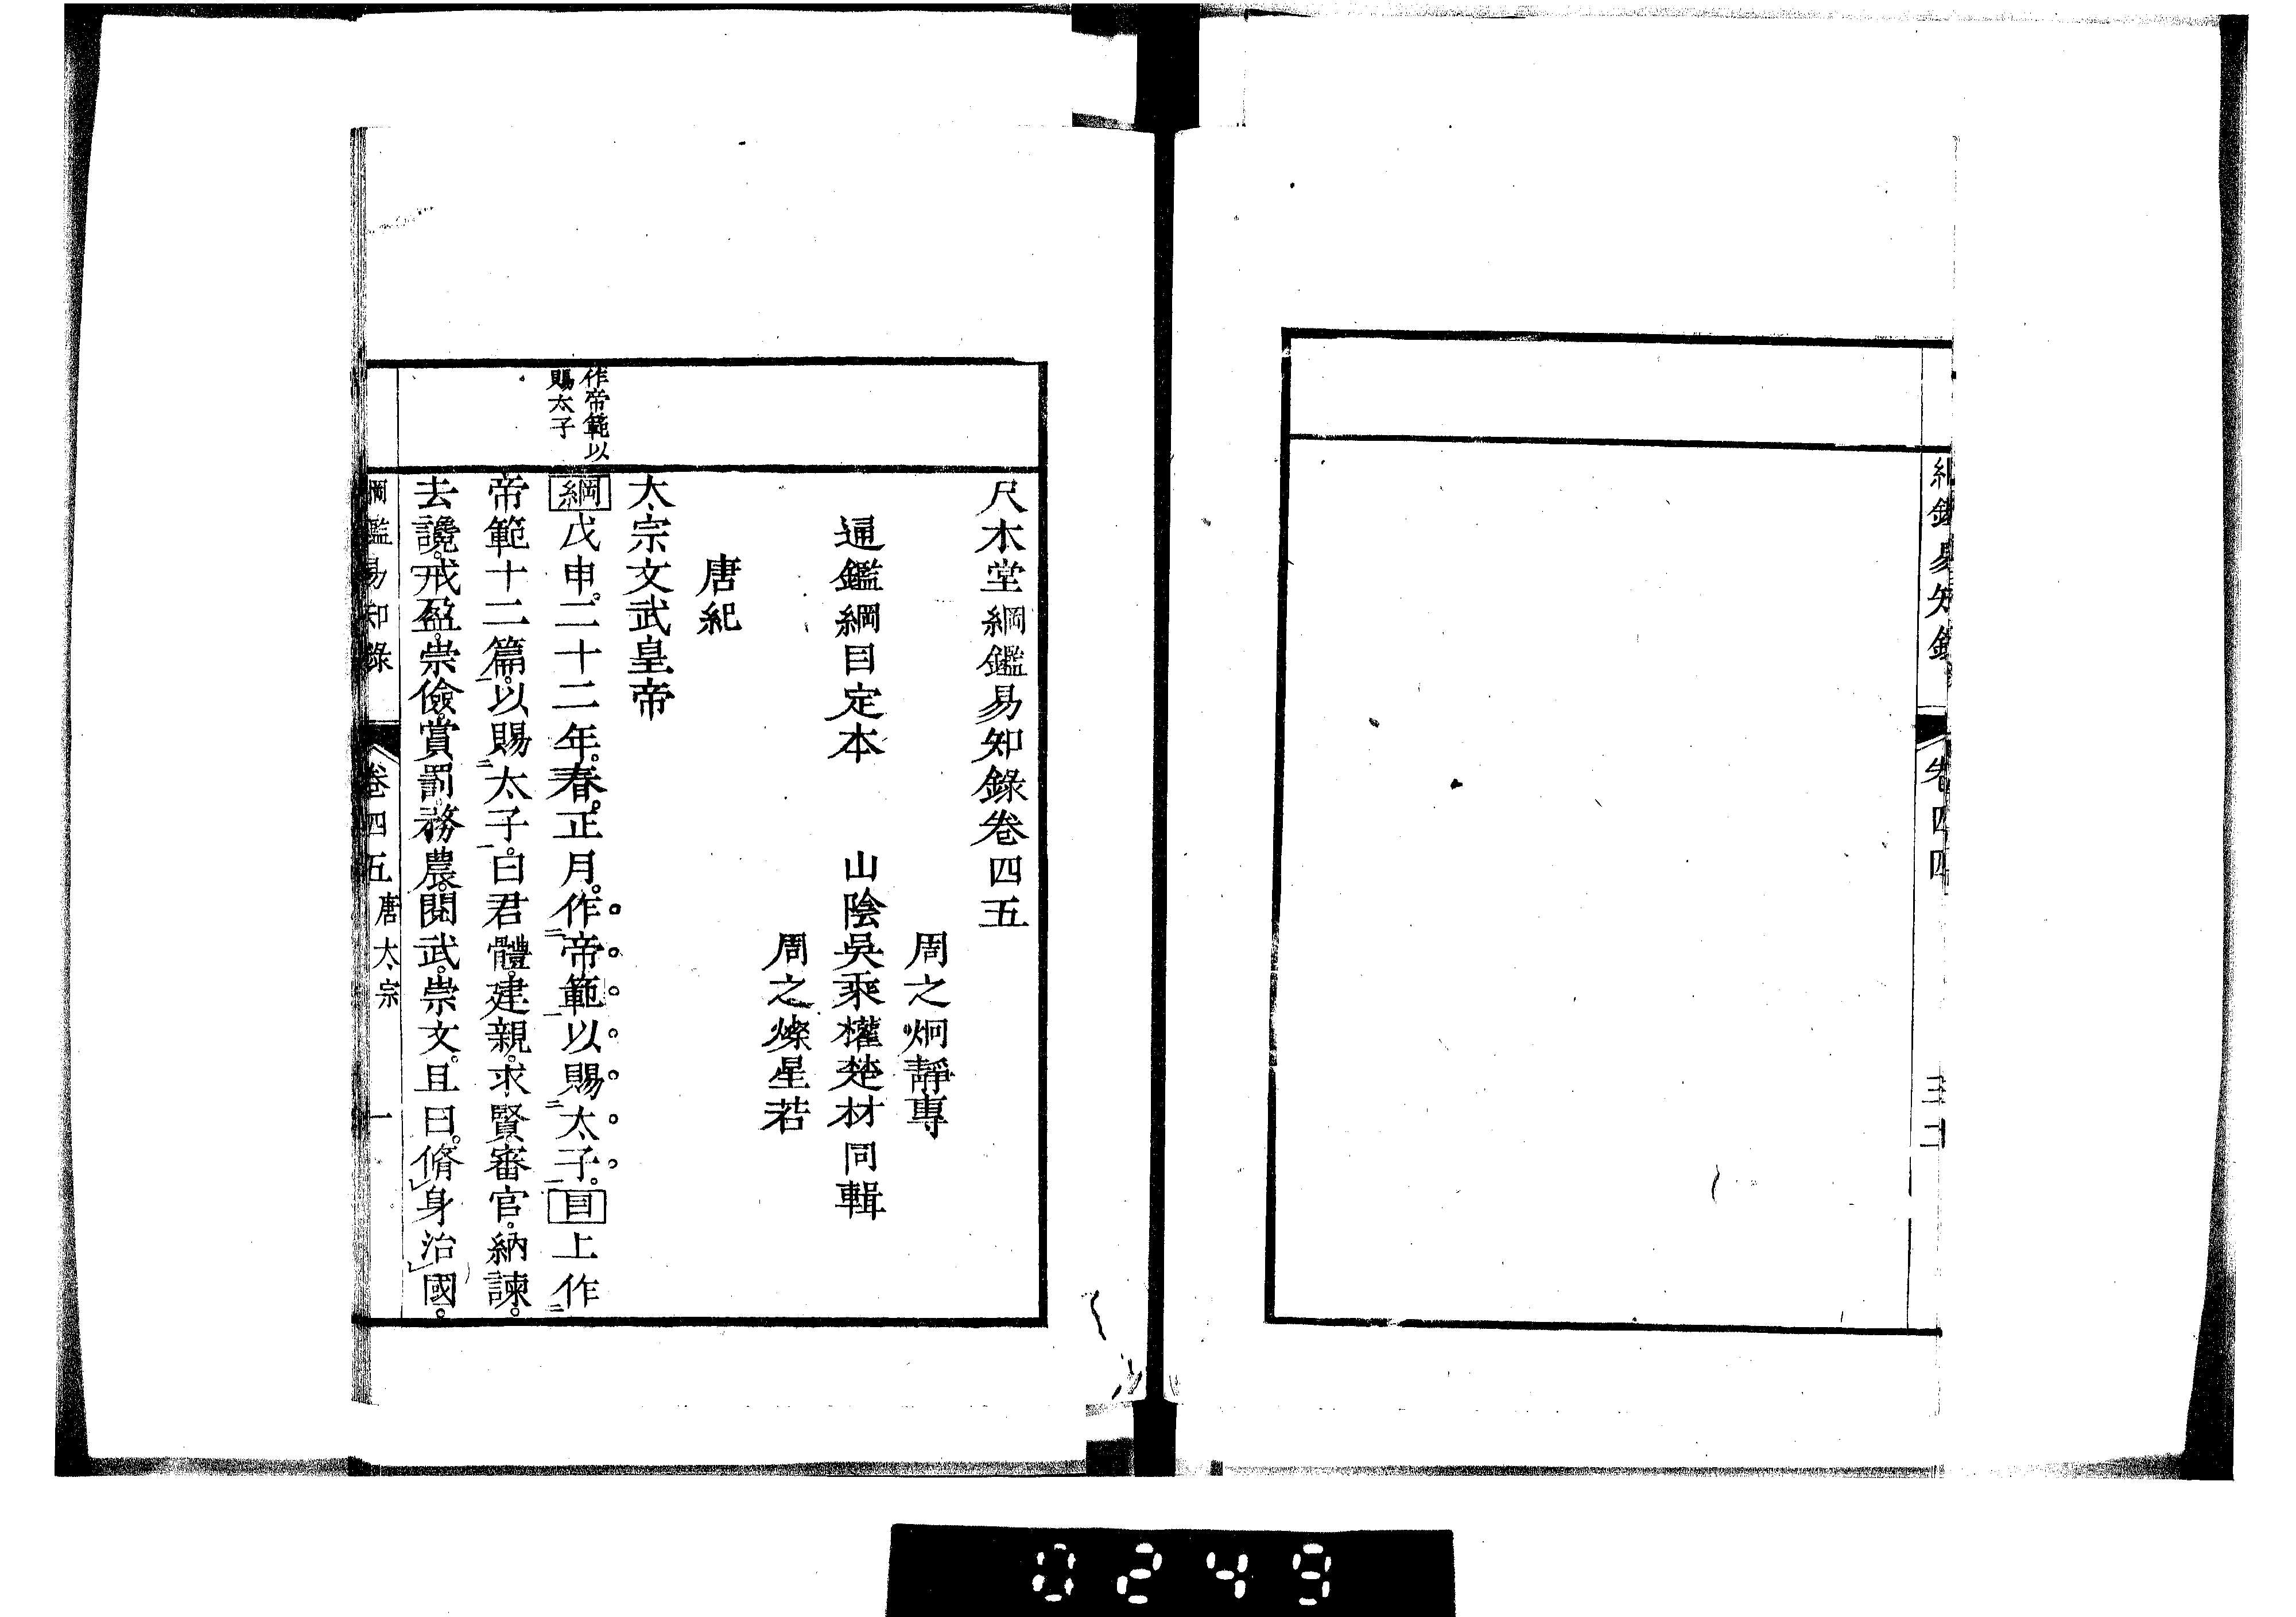 綱鑑易知錄
卷四四
三二
尺木堂綱鑑易知錄卷四五
周之炯靜專
通鑑綱目定本　山陰吳乘權楚材同輯
周之燦星若
唐紀
太宗文武皇帝
作帝範以
賜太子
綱戊申。二十二年。春。正月。作二帝範一以賜二太子一。目上作二
帝範十二篇一。以賜二太子一。曰君體。建親。求賢。審官。納諫。
去讒。戒盈。崇儉。賞罰。務農。閱武。崇文。且曰。脩レ身治レ國。
綱鑑易知錄
卷四五
唐太宗
一
0249